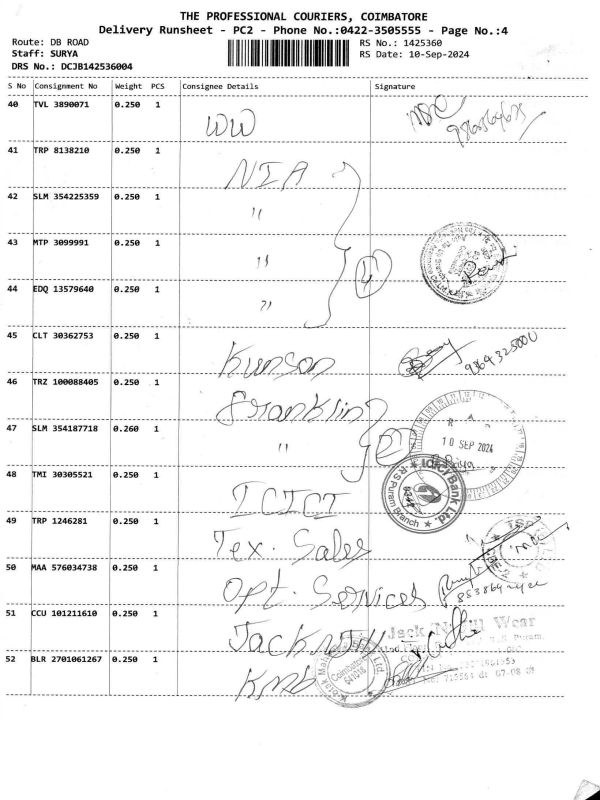 THE PROFESSIONAL COURIERS, COIMBATORE
Delivery Runsheet - PC2 - Phone No.:0422-3505555 - Page No.:4
Route: DB ROAD
RS No.: 1425360
Staff: SURYA
RS Date: 10-Sep-2024
DRS No.: DCJB142536004
S No Consignment No Weight PCS Consignee Details Signature
40 TVL 3890071 0.250 1 WW
41 TRP 8138210 0.250 1 NIA
42 SLM 354225359 0.250 1 "
43 MTP 3099991 0.250 1 "
44 EDQ 13579640 0.250 1 "
4
45 CLT 30362753 0.250 1 Kunson
46 TRZ 100088405 0.250 1 Franklin
47 SLM 354187718 0.260 1 "
2
10 SEP 2024
48 TMI 30305521 0.250 1 ICICI
ICICI Bank Ltd.
R S Puram Branch
49 TRP 1246281 0.250 1 Tex. Sales
50 MAA 576034738 0.250 1 Opt. Services
51 CCU 101211610 0.250 1
Jack N Jill Wear
52 BLR 2701061267 0.250 1 KMB
Coimbatore